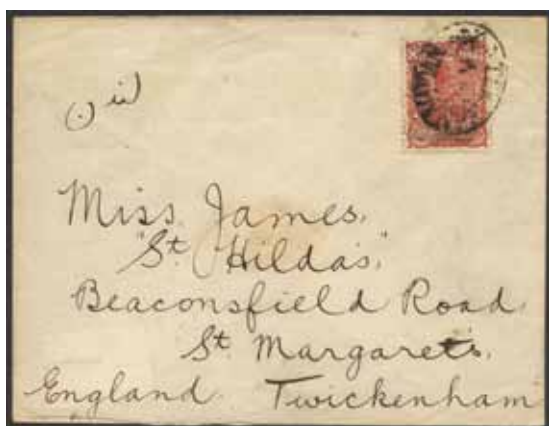 Miss James,
"St Hilda's,"
Beaconsfield Road
St Margaret's,
England Twickenham